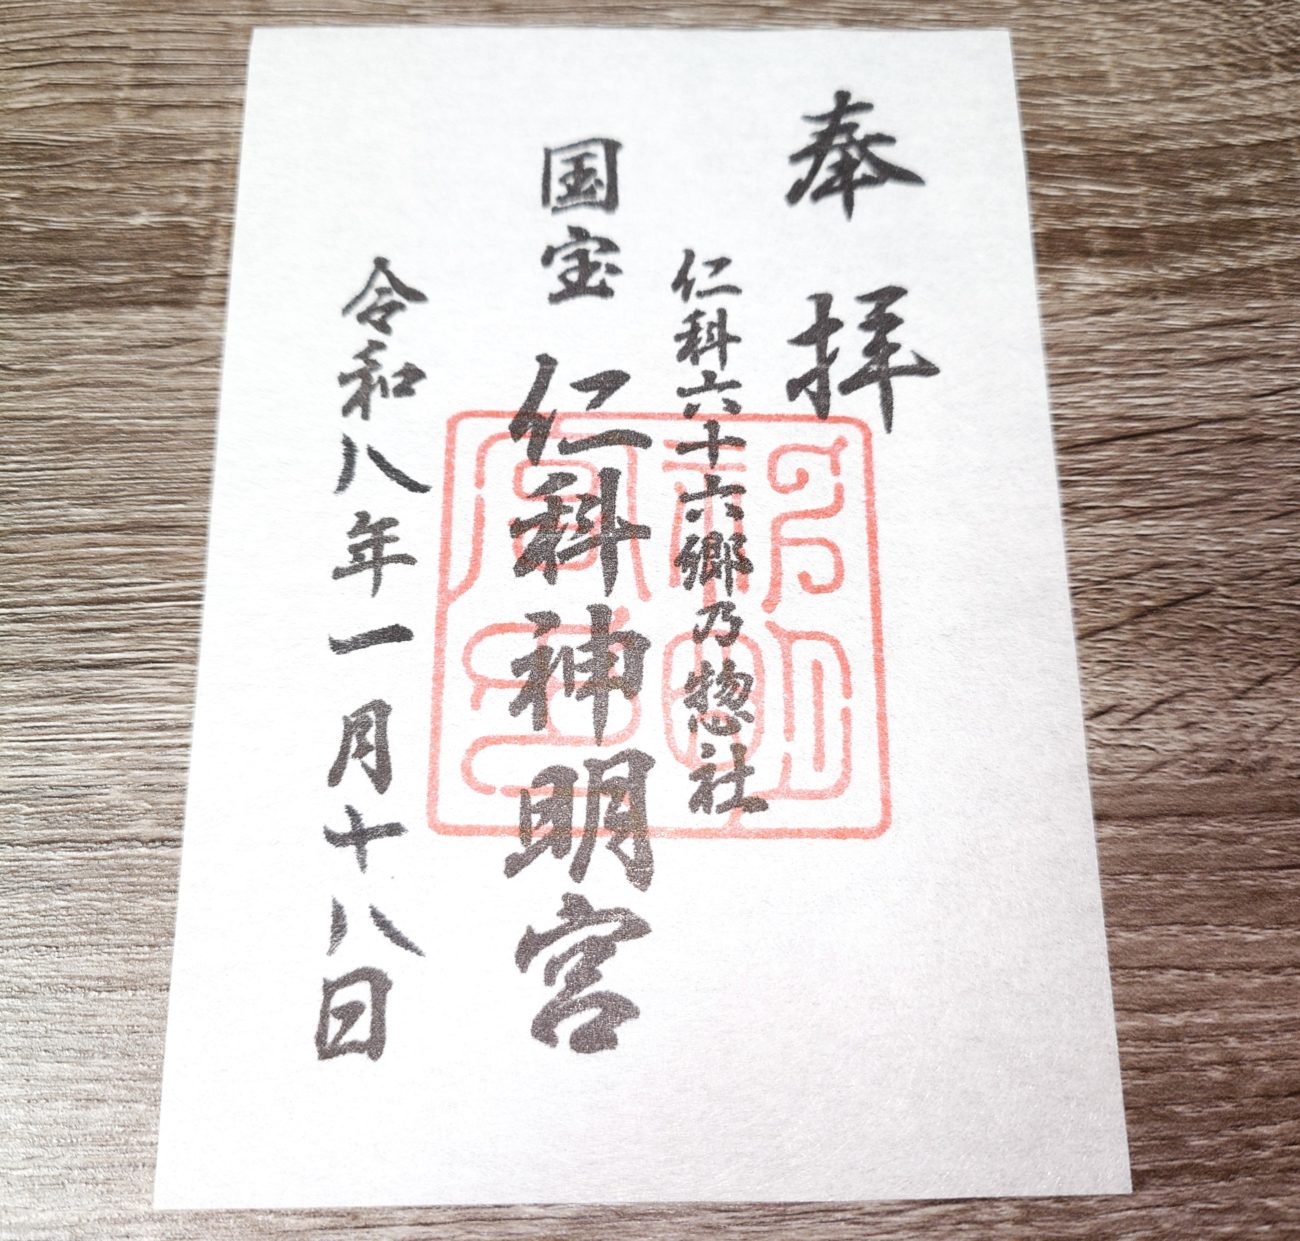 奉拝
仁科六十六郷乃惣社
国宝 仁科神明宮
令和八年一月十八日